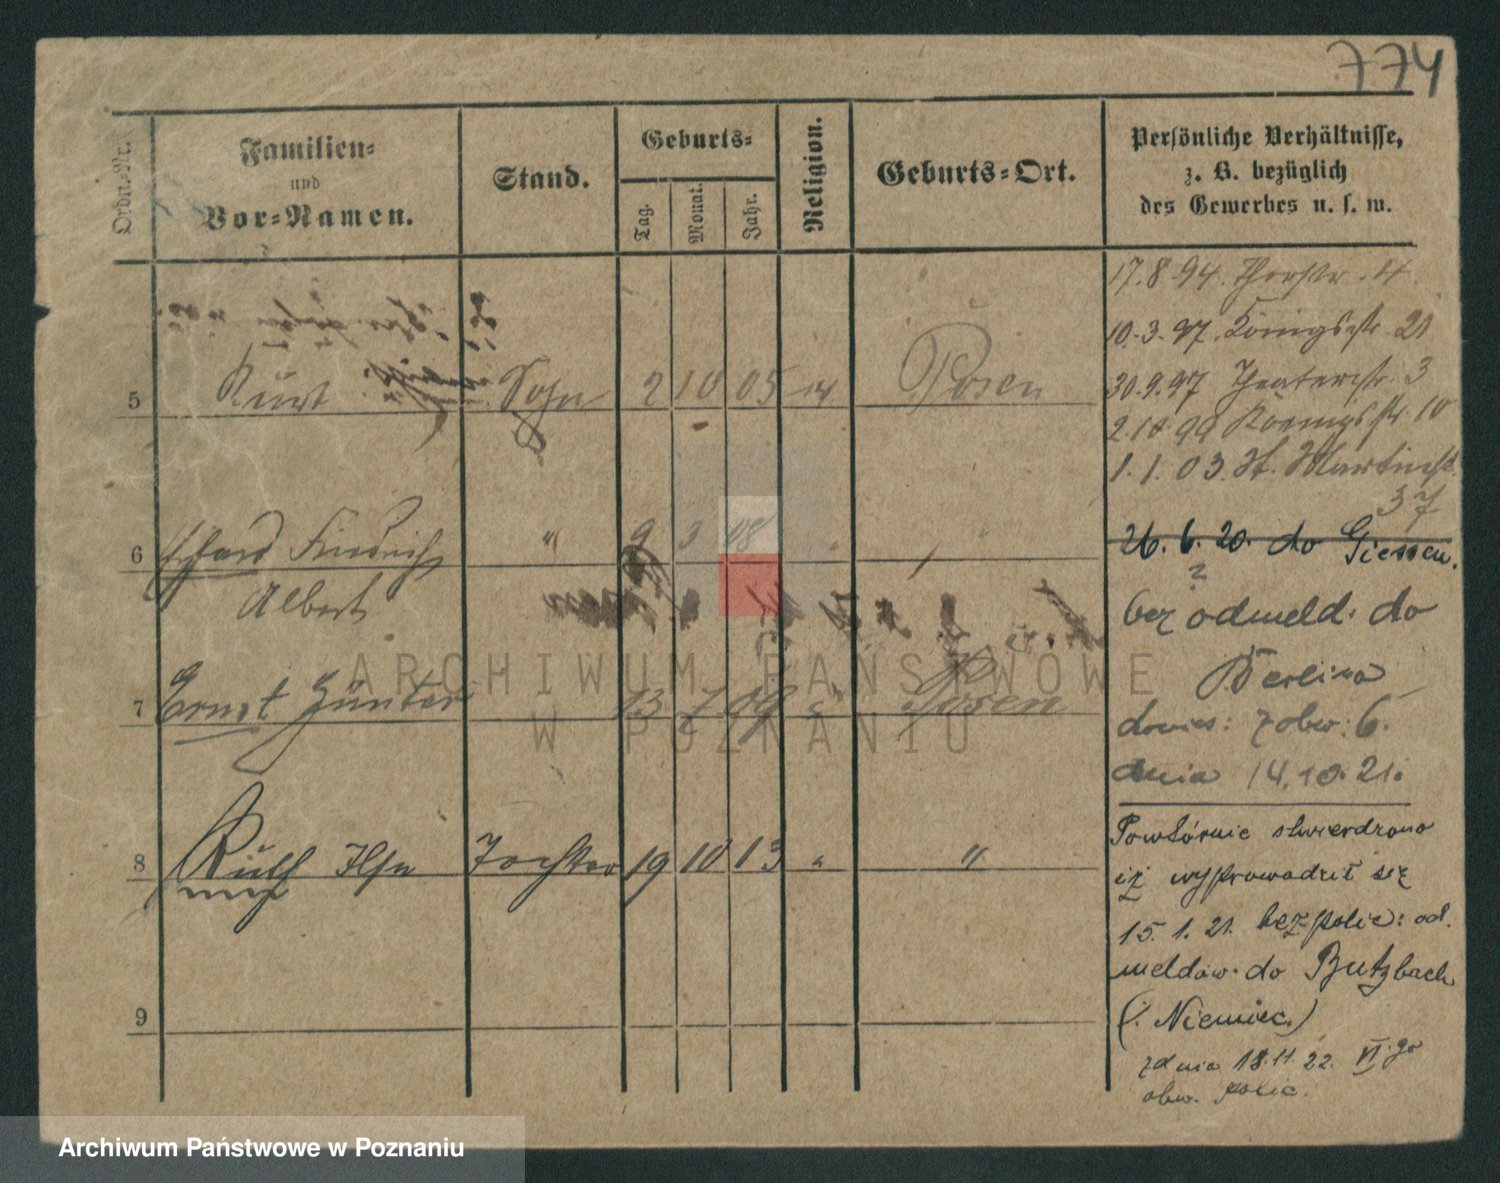 774
Ordn.-Nr.
Familien-
und
Vor-Namen.
Stand.
Geburts-
Tag.
Monat.
Jahr.
Religion.
Geburts-Ort.
Persönliche Verhältnisse,
z. B. bezüglich
des Gewerbes u. s. w.
17.8.94. Thorstr. 4
10.3.97. Königsstr. 21
30.9.97 Theaterstr. 3
2.10.99 Koenigsstr. 10
1.1.03. St. Martinstr.
37
5 Kurt Sohn 2 10 05 Posen
6 Erhard Friedrich " 9 3 08 " "
Albert
7 Ernst Günter 13 7 09 " Posen
8 Ruth Ilse Tochter 19 10 13 " "
9
26.6.20. do Giessen.
?
bez odmeld. do
Berlina
donies: z obw: 6.
dnia 14.10.21.
Powtórnie stwierdzono
iż wyprowadził się
15.1.21. bez polic: od.
meldow. do Butzbach
(: Niemiec.)
z dnia 18.11.22. VI-go
obw. polic.
ARCHIWUM PAŃSTWOWE
W POZNANIU
Archiwum Państwowe w Poznaniu